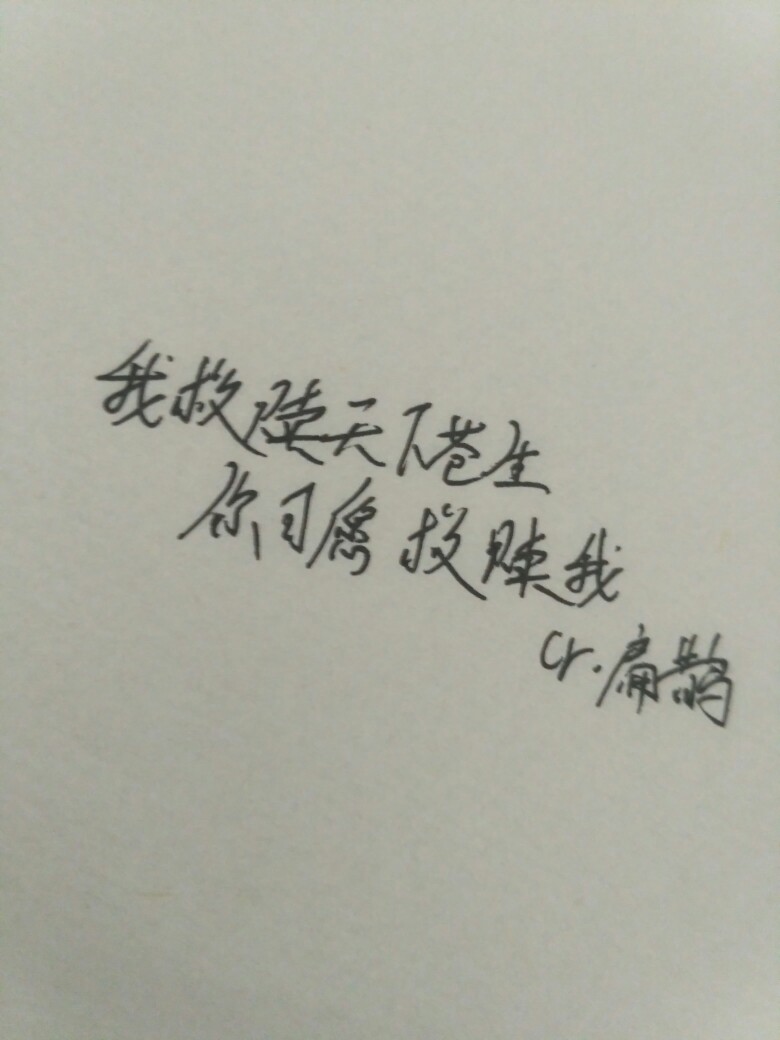 我救赎天下苍生
你可愿救赎我
cr.扁鹊